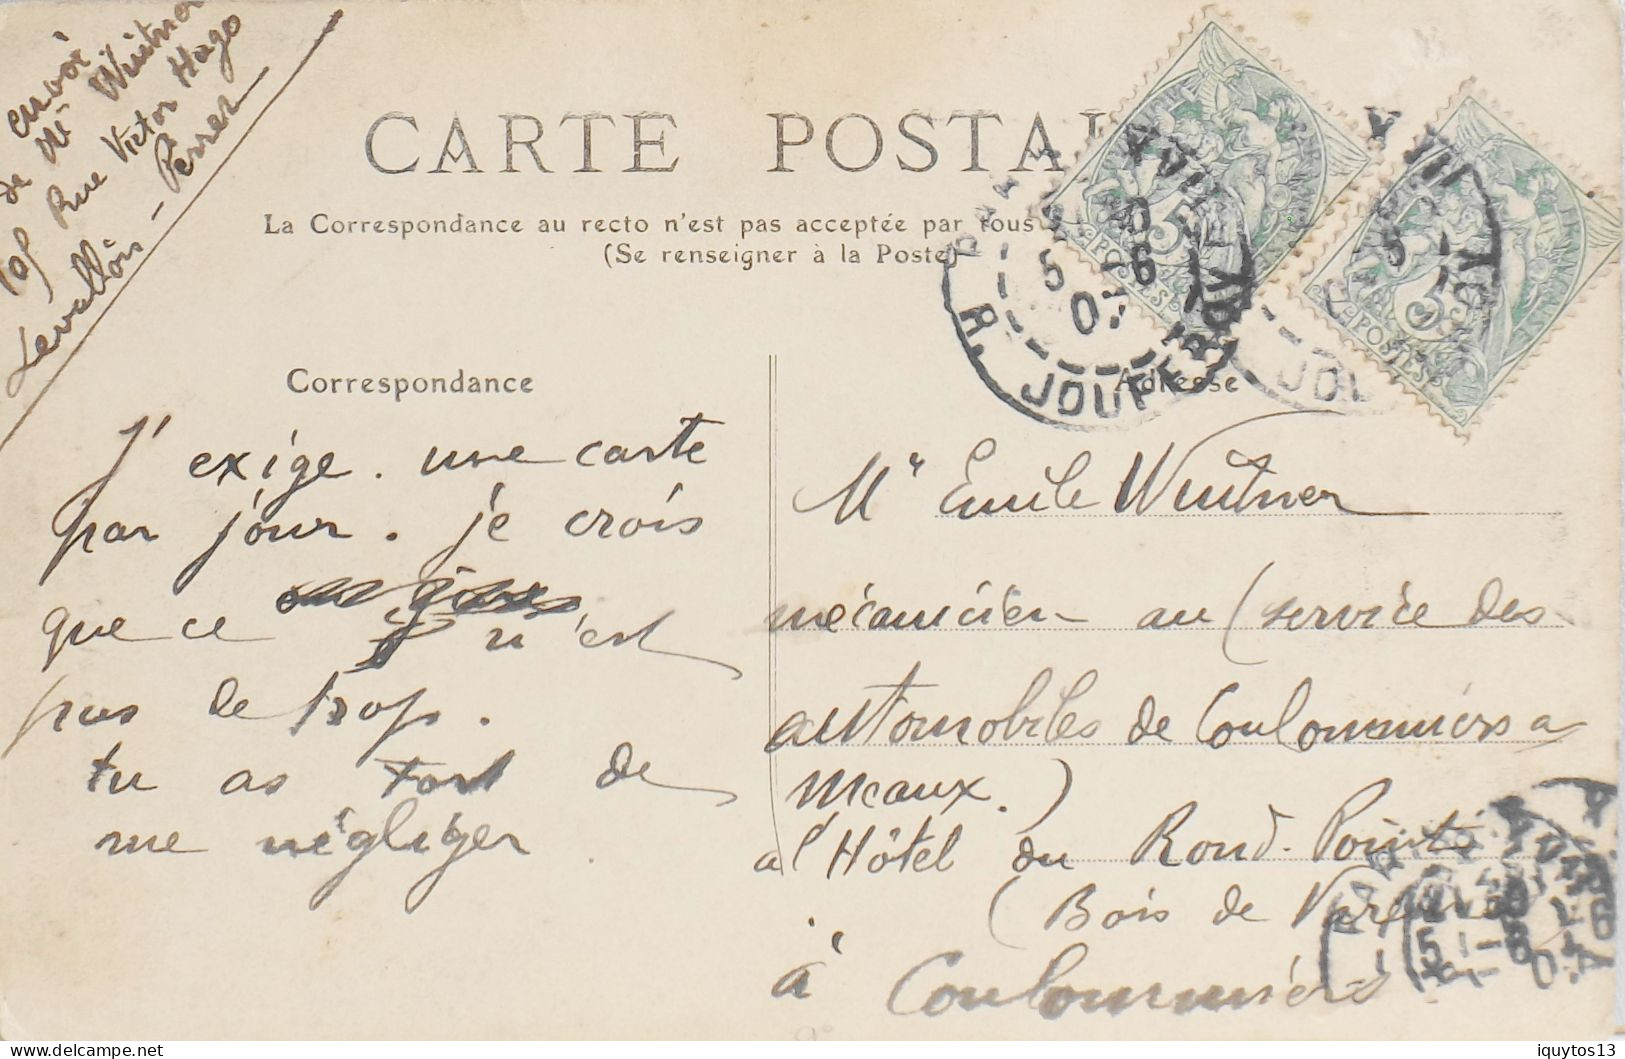 envoi
de Mr
Rue Victor Hugo
Levallois-Perret
CARTE POSTAL
La Correspondance au recto n'est pas acceptée par tous
(Se renseigner à la Poste)
Correspondance
Adresse
J'exige. une carte
par jour. je crois
que ce n'est
pas de trop.
tu as tort de
me négliger
Mr Emile
mécanicien au (service des
automobiles de Coulommiers a
Meaux.)
a l'Hôtel du Rond-Point
(Bois de
à Coulommiers
XVII
5 6
07
R. JOUFFROY
5
JOU
POSTES
5
POSTES
5
iquytos13